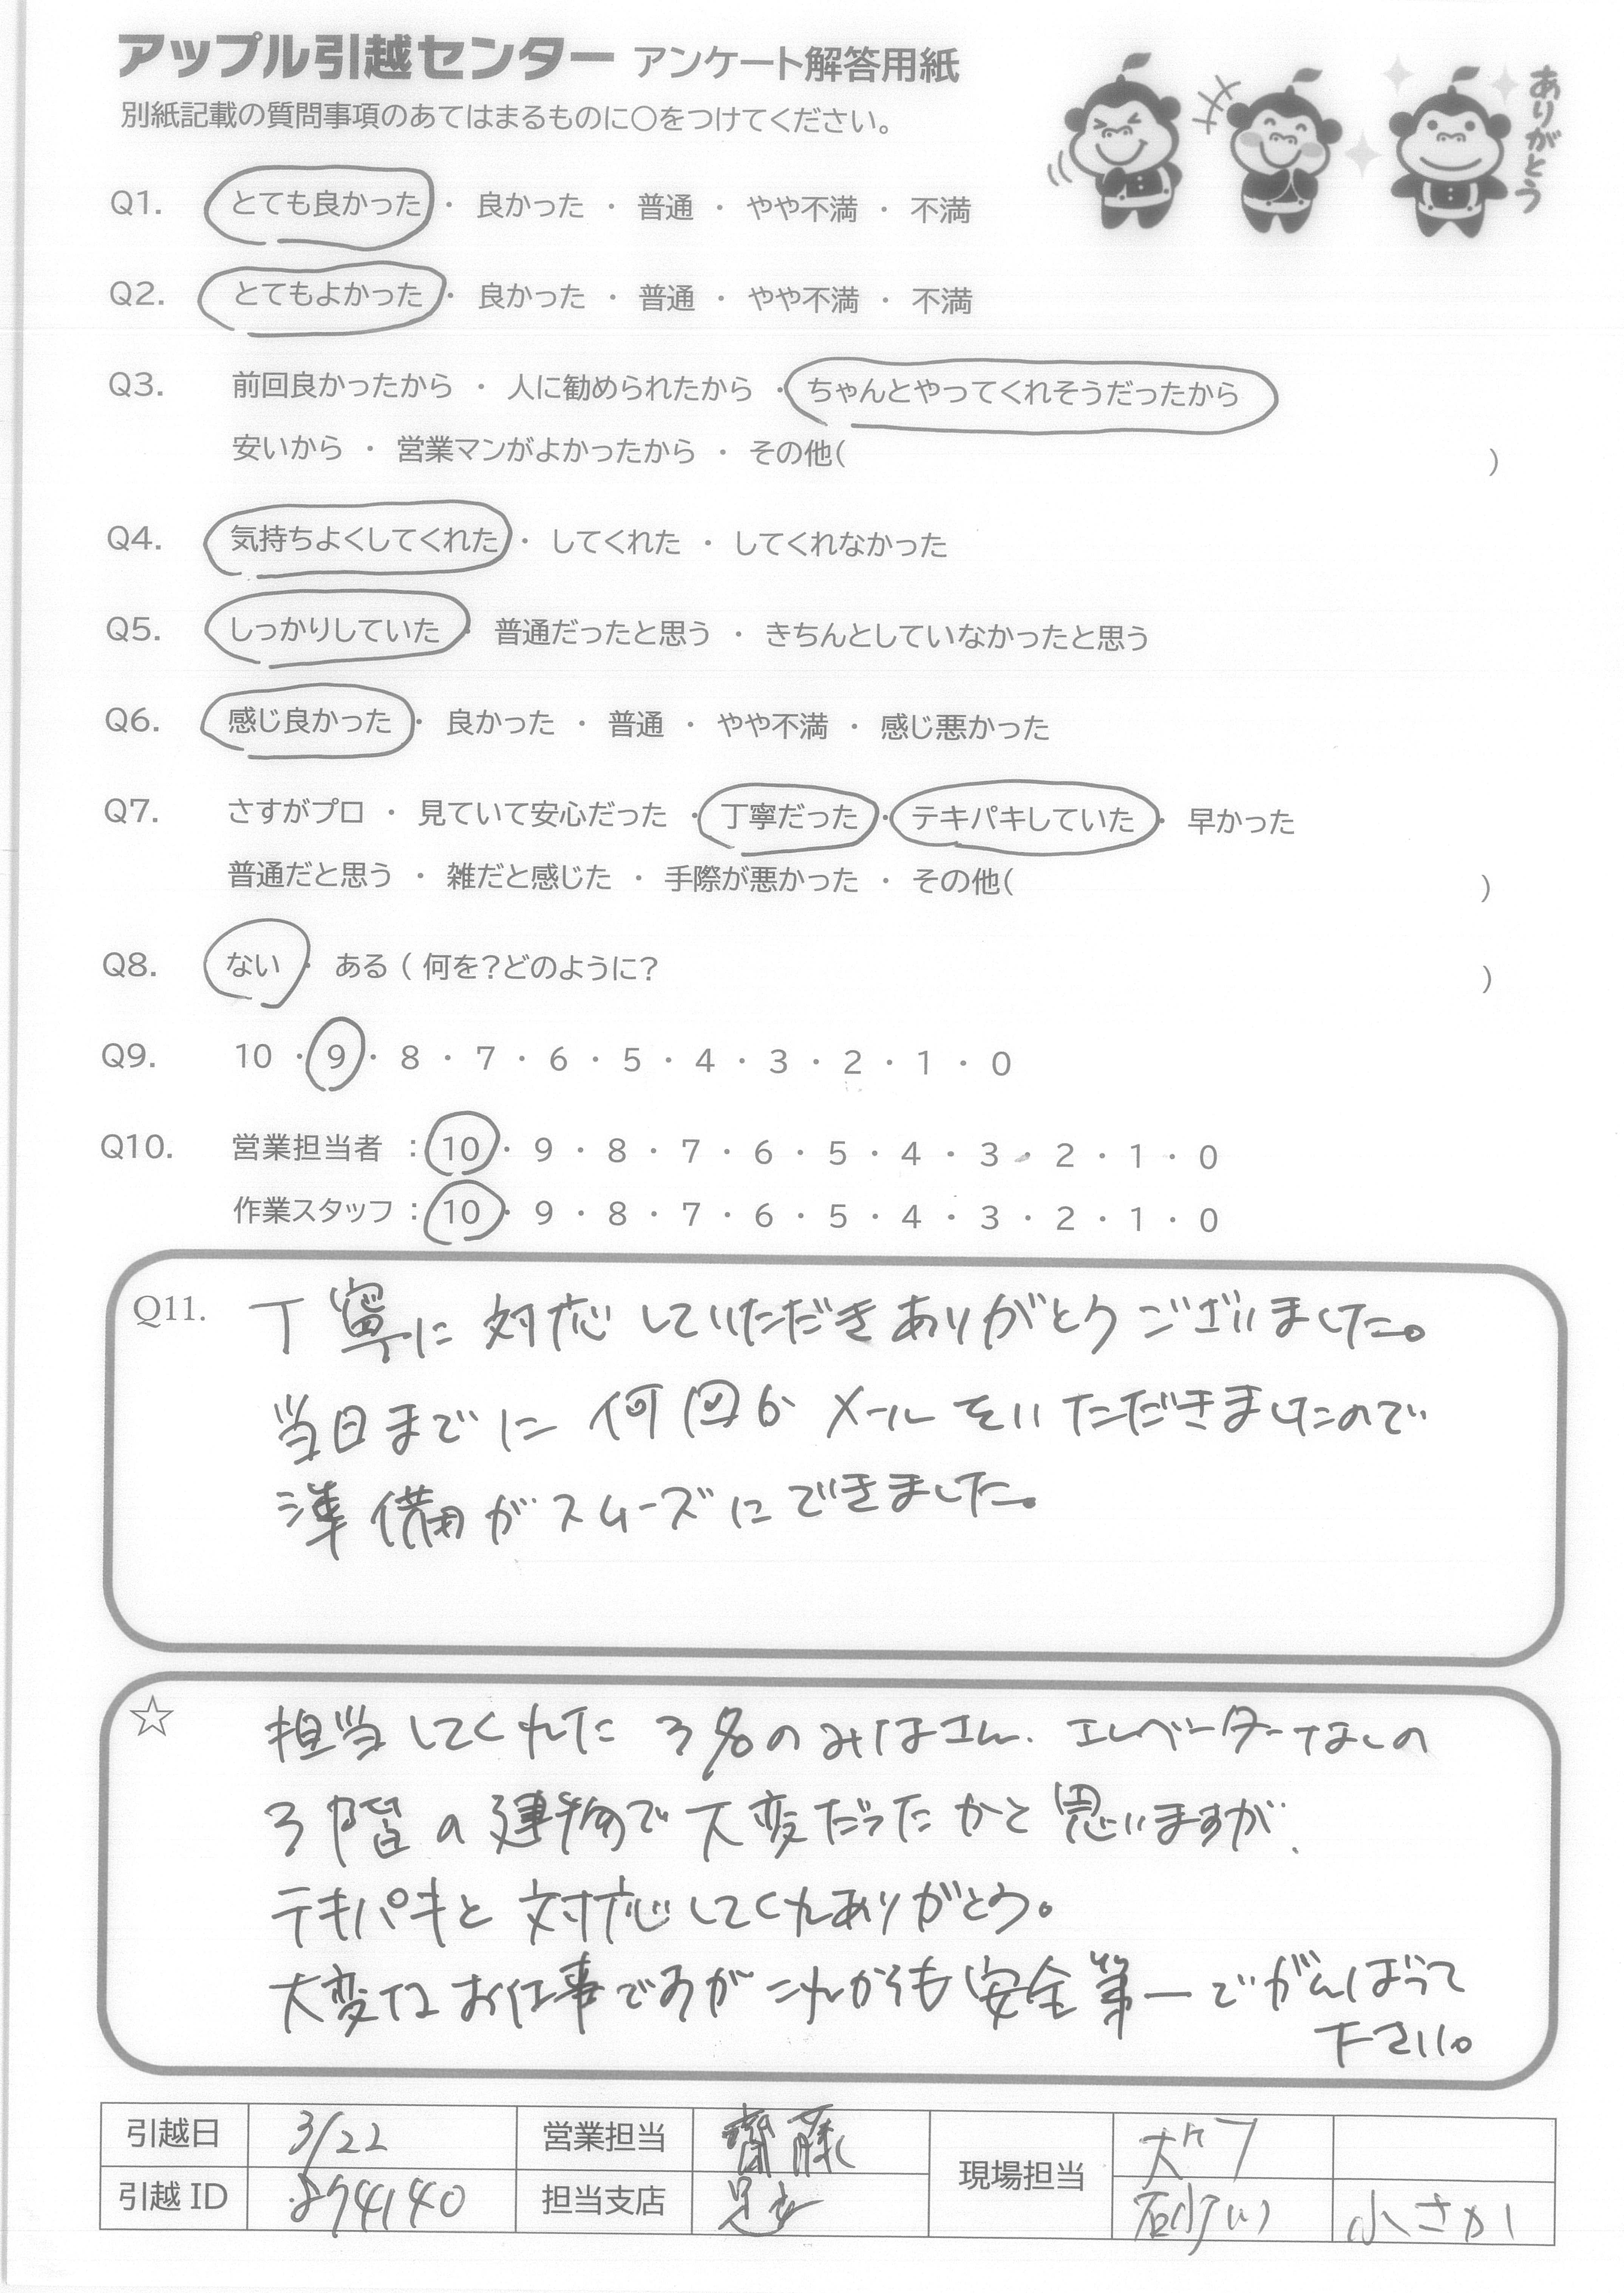 アップル引越センター アンケート解答用紙
別紙記載の質問事項のあてはまるものに○をつけてください。
ありがとう
Q1. とても良かった ・ 良かった ・ 普通 ・ やや不満 ・ 不満
Q2. とてもよかった ・ 良かった ・ 普通 ・ やや不満 ・ 不満
Q3. 前回良かったから ・ 人に勧められたから ・ ちゃんとやってくれそうだったから
安いから ・ 営業マンがよかったから ・ その他( )
Q4. 気持ちよくしてくれた ・ してくれた ・ してくれなかった
Q5. しっかりしていた ・ 普通だったと思う ・ きちんとしていなかったと思う
Q6. 感じ良かった ・ 良かった ・ 普通 ・ やや不満 ・ 感じ悪かった
Q7. さすがプロ ・ 見ていて安心だった ・ 丁寧だった ・ テキパキしていた ・ 早かった
普通だと思う ・ 雑だと感じた ・ 手際が悪かった ・ その他( )
Q8. ない ・ ある ( 何を?どのように? )
Q9. 10 ・ 9 ・ 8 ・ 7 ・ 6 ・ 5 ・ 4 ・ 3 ・ 2 ・ 1 ・ 0
Q10. 営業担当者 : 10 ・ 9 ・ 8 ・ 7 ・ 6 ・ 5 ・ 4 ・ 3 ・ 2 ・ 1 ・ 0
作業スタッフ : 10 ・ 9 ・ 8 ・ 7 ・ 6 ・ 5 ・ 4 ・ 3 ・ 2 ・ 1 ・ 0
Q11. 丁寧に対応していただきありがとうございました。
当日までに何回かメールをいただきましたので
準備がスムーズにできました。
☆ 担当してくれた3名のみなさん、エレベーターなしの
3階の建物で大変だったかと思いますが、
テキパキと対応してくれありがとう。
大変なお仕事ですがこれからも安全第一でがんばって
下さい。
引越日 3/22 営業担当 齋藤 現場担当
引越ID 874140 担当支店 足立 砂川 小さかい